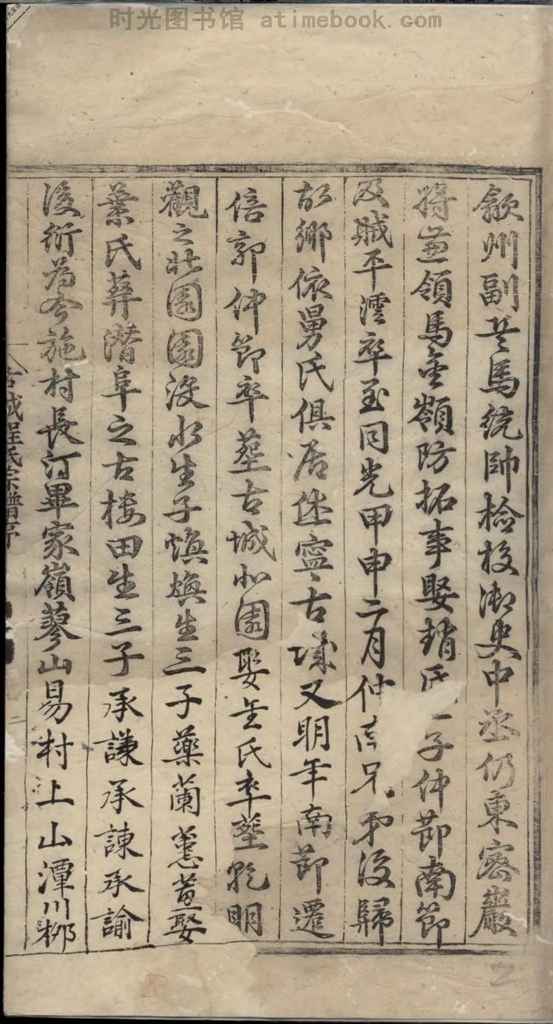 时光图书馆 atimebook.com
歙州副兵馬統帥檢校御史中丞仍東密巖
將兼領馬金嶺防拓事娶趙氏二子仲節南節
及賊平澐卒至同光甲申二月仲 兄弟復歸
故鄉依舅氏俱居休寧古城又明年南節遷
倍郭仲節卒塟古城北園娶金氏卒塟 明
觀之北園園沒水生子煥煥生三子藥蘭蕙蕙娶
葉氏葬潛阜之古樓田生三子承謙承諫承諭
後衍為今施村長汀畢家嶺蓼山易村上山潭川栁
古城程氏宗譜序